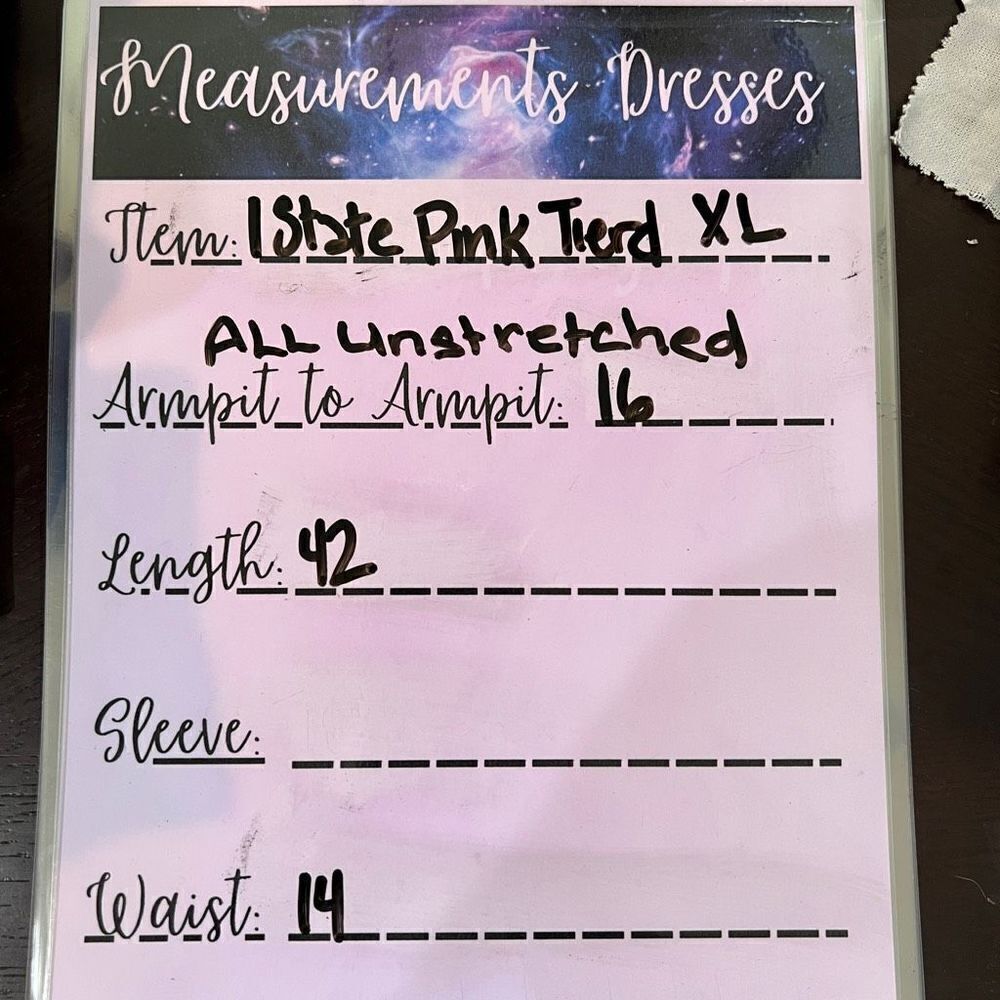 Measurements Dresses
Item: 1State Pink Tierd XL
ALL unstretched
Armpit to Armpit: 16
Length: 42
Sleeve:
Waist: 14